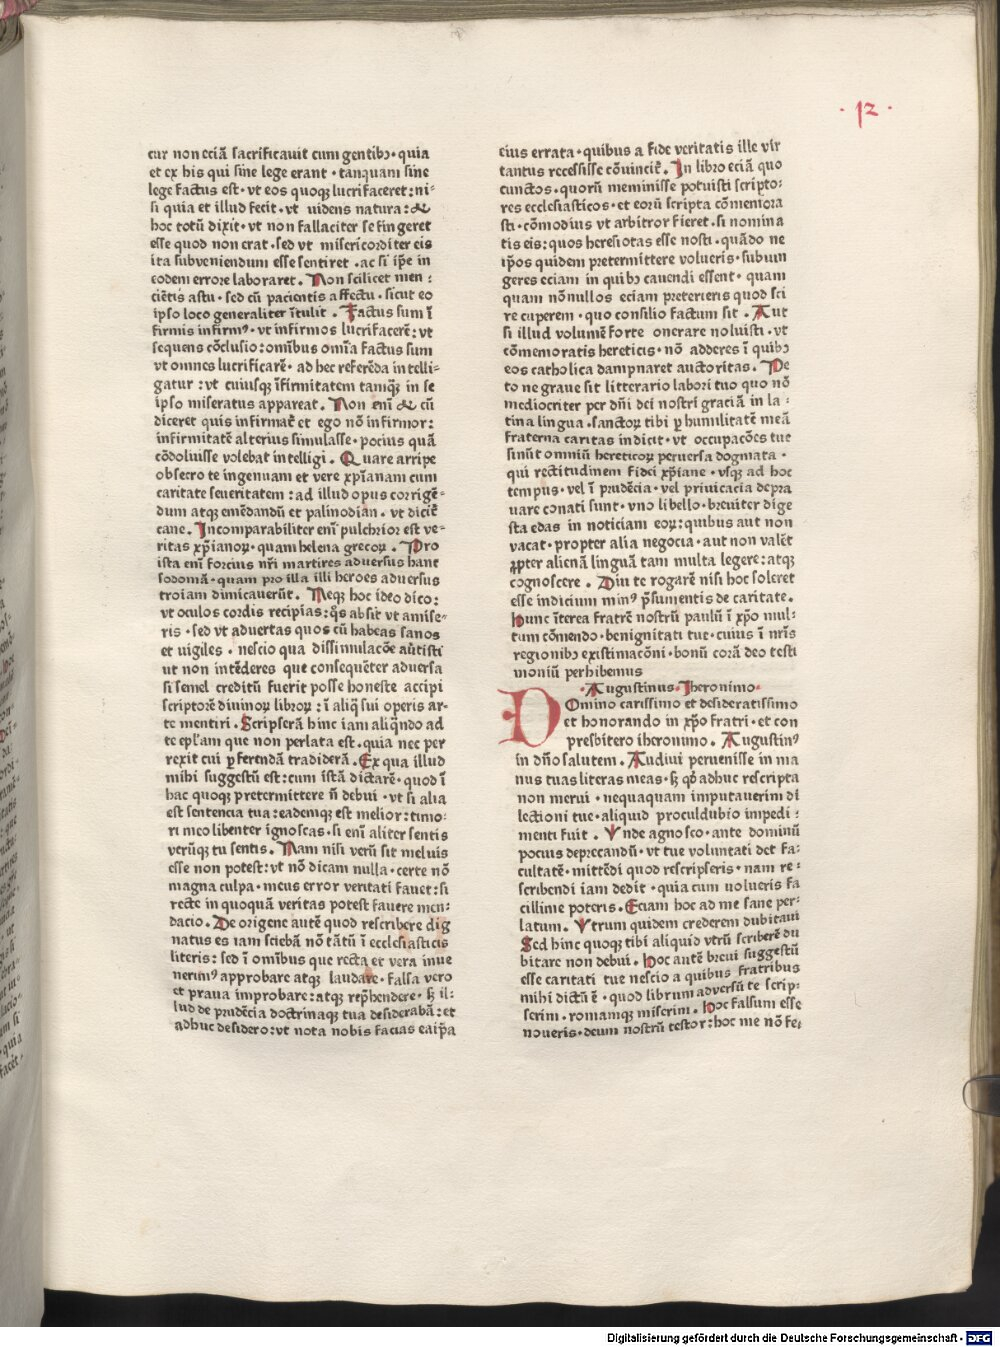 · 12 ·
cur non eciā sacrificauit cum gentibꝫ · quia
et ex his qui sine lege erant · tanquam sine
lege factus est · vt eos quoqꝫ lucrifaceret : ni-
si quia et illud fecit · vt uidens natura : &
hoc totū dixit · vt non fallaciter se fingeret
esse quod non erat · sed vt misericorditer eis
ita subueniendum esse sentiret · ac si ip̄e in
eodem errore laboraret . Non scilicet men :
ciētis astu · sed cū pacientis affectu · sicut eo
ipso loco generaliter ītulit . Factus sum ī
firmis infirmꝰ · vt infirmos lucrifacerē : vt
sequens cōclusio : omībus om̄ia factus sum
vt omnes lucrificarē · ad hec referēda intelli-
gatur : vt cuiusqꝫ īfirmitatem tamqꝫ in se
ipso miseratus appareat . Non enī & cū
diceret quis infirmat̄ et ego nō infirmor :
infirmitatē alterius simulasse · pocius quā
cōdoluisse volebat intelligi . Quare arripe
obsecro te ingenuam et vere xp̄ianam cum
caritate seueritatem : ad illud opus corrigē-
dum atqꝫ emēdandū et palinodian · vt dicit̄
cane . Incomparabiliter enī pulchrior est ve-
ritas xp̄ianoꝝ · quam helena grecoꝝ . Pro
ista enī forcius nr̄i martires aduersus hanc
sodomā · quam pro illa illi heroes aduersus
troiam dimicauerūt . Neqꝫ hoc ideo dico :
vt oculos cordis recipias : q̄s absit vt amise-
ris · sed vt aduertas quos cū habeas sanos
et uigiles · nescio qua dissimulacōe aūtisti
ut non intēderes que consequēter aduersa
si semel creditū fuerit posse honeste accipi
scriptorē diuinoꝝ libroꝝ : ī aliq̄ sui operis ar-
te mentiri . Scripserā hinc iam aliqn̄do ad
te ep̄lam que non perlata est · quia nec per
rexit cui ꝑferendā tradiderā . Ex qua illud
mihi suggestū est : cum istā dictarē · quod ī
hac quoqꝫ pretermittere n̄ debui · vt si alia
est sentencia tua : eademqꝫ est melior : timo-
ri meo libenter ignoscas · si enī aliter sentis
verūqꝫ tu sentis . Nam nisi verū sit meluis
esse non potest : vt nō dicam nulla · certe nō
magna culpa · meus error veritati fauet : si
recte in quoquā veritas potest fauere men-
dacio . De origene autē quod rescribere dig
natus es iam sciebā nō tātū ī ecclesiasticis
literis : sed ī omībus que recta et vera inue
nerimꝰ approbare atqꝫ laudare · falsa vero
et praua improbare : atqꝫ rep̄hendere · sꝫ il-
lud de prudēcia doctrinaqꝫ tua desiderabā : et
adhuc desidero : vt nota nobis facias ea ip̄a
eius errata · quibus a fide veritatis ille vir
tantus recessisse cōuincit̄ . In libro eciā quo
cunctos · quorū meminisse potuisti scripto :
res ecclesiasticos · et eorū scripta cōmemora
sti · cōmodius vt arbitror fieret · si nomina
tis eis : quos heresiotas esse nosti · quādo ne
ip̄os quidem pretermittere volueris · subiun
geres eciam in quibꝫ cauendi essent · quam
quam nōnullos eciam preterieris quod sci
re cuperem · quo consilio factum sit . Aut
si illud volumē forte onerare noluisti · vt
cōmemoratis hereticis · nō adderes ī quibꝫ
eos catholica dampnaret auctoritas . Pe
to ne graue sit litterario labori tuo quo nō
mediocriter per dn̄i dei nostri graciā in la :
tina lingua · sanctoꝝ tibi ꝑ humilitatē meā
fraterna caritas indicit · vt occupacōes tue
sinūt omniū hereticoꝝ peruersa dogmata ·
qui rectitudinem fidei xp̄iane · vsqꝫ ad hoc
tempus · vel ī prudēcia · vel priuicacia depra
uare conati sunt · vno libello · breuiter dige
sta edas in noticiam eoꝝ : quibus aut non
vacat · propter alia negocia · aut non valēt
ꝓpter alienā linguā tam multa legere : atqꝫ
cognoscere . Diu te rogarē nisi hoc soleret
esse indicium minꝰ p̄sumentis de caritate .
Hunc īterea fratrē nostrū paulū ī xp̄o mul-
tum cōmendo · benignitati tue · cuius ī nr̄is
regionibꝫ existimacōni · bonū corā deo testi
moniū perhibemus
· Augustinus · Iheronimo ·
DOmino carissimo et desideratissimo
et honorando in xp̄o fratri · et con
presbitero iheronimo . Augustinꝰ
in dn̄o salutem . Audiui peruenisse in ma
nus tuas literas meas · sꝫ qꝫ adhuc rescripta
non merui · nequaquam imputauerim di
lectioni tue · aliquid proculdubio impedi :
menti fuit . Vnde agnosco · ante dominū
pocius deprecandū · vt tue voluntati det fa-
cultatē · mittēdi quod rescripseris · nam re :
scribendi iam dedit · quia cum uolueris fa
cillime poteris . Eciam hoc ad me sane per-
latum . Vtrum quidem crederem dubitaui
Sed hinc quoqꝫ tibi aliquid vtrū scriberē du
bitare non debui . Hoc antē breui suggestū
esse caritati tue nescio a quibus fratribus
mihi dictū ē · quod librum aduersū te scrip-
serim · romamqꝫ miserim . Hoc falsum esse
noueris · deum nostrū testor : hoc me nō fe,
Digitalisierung gefördert durch die Deutsche Forschungsgemeinschaft - DFG